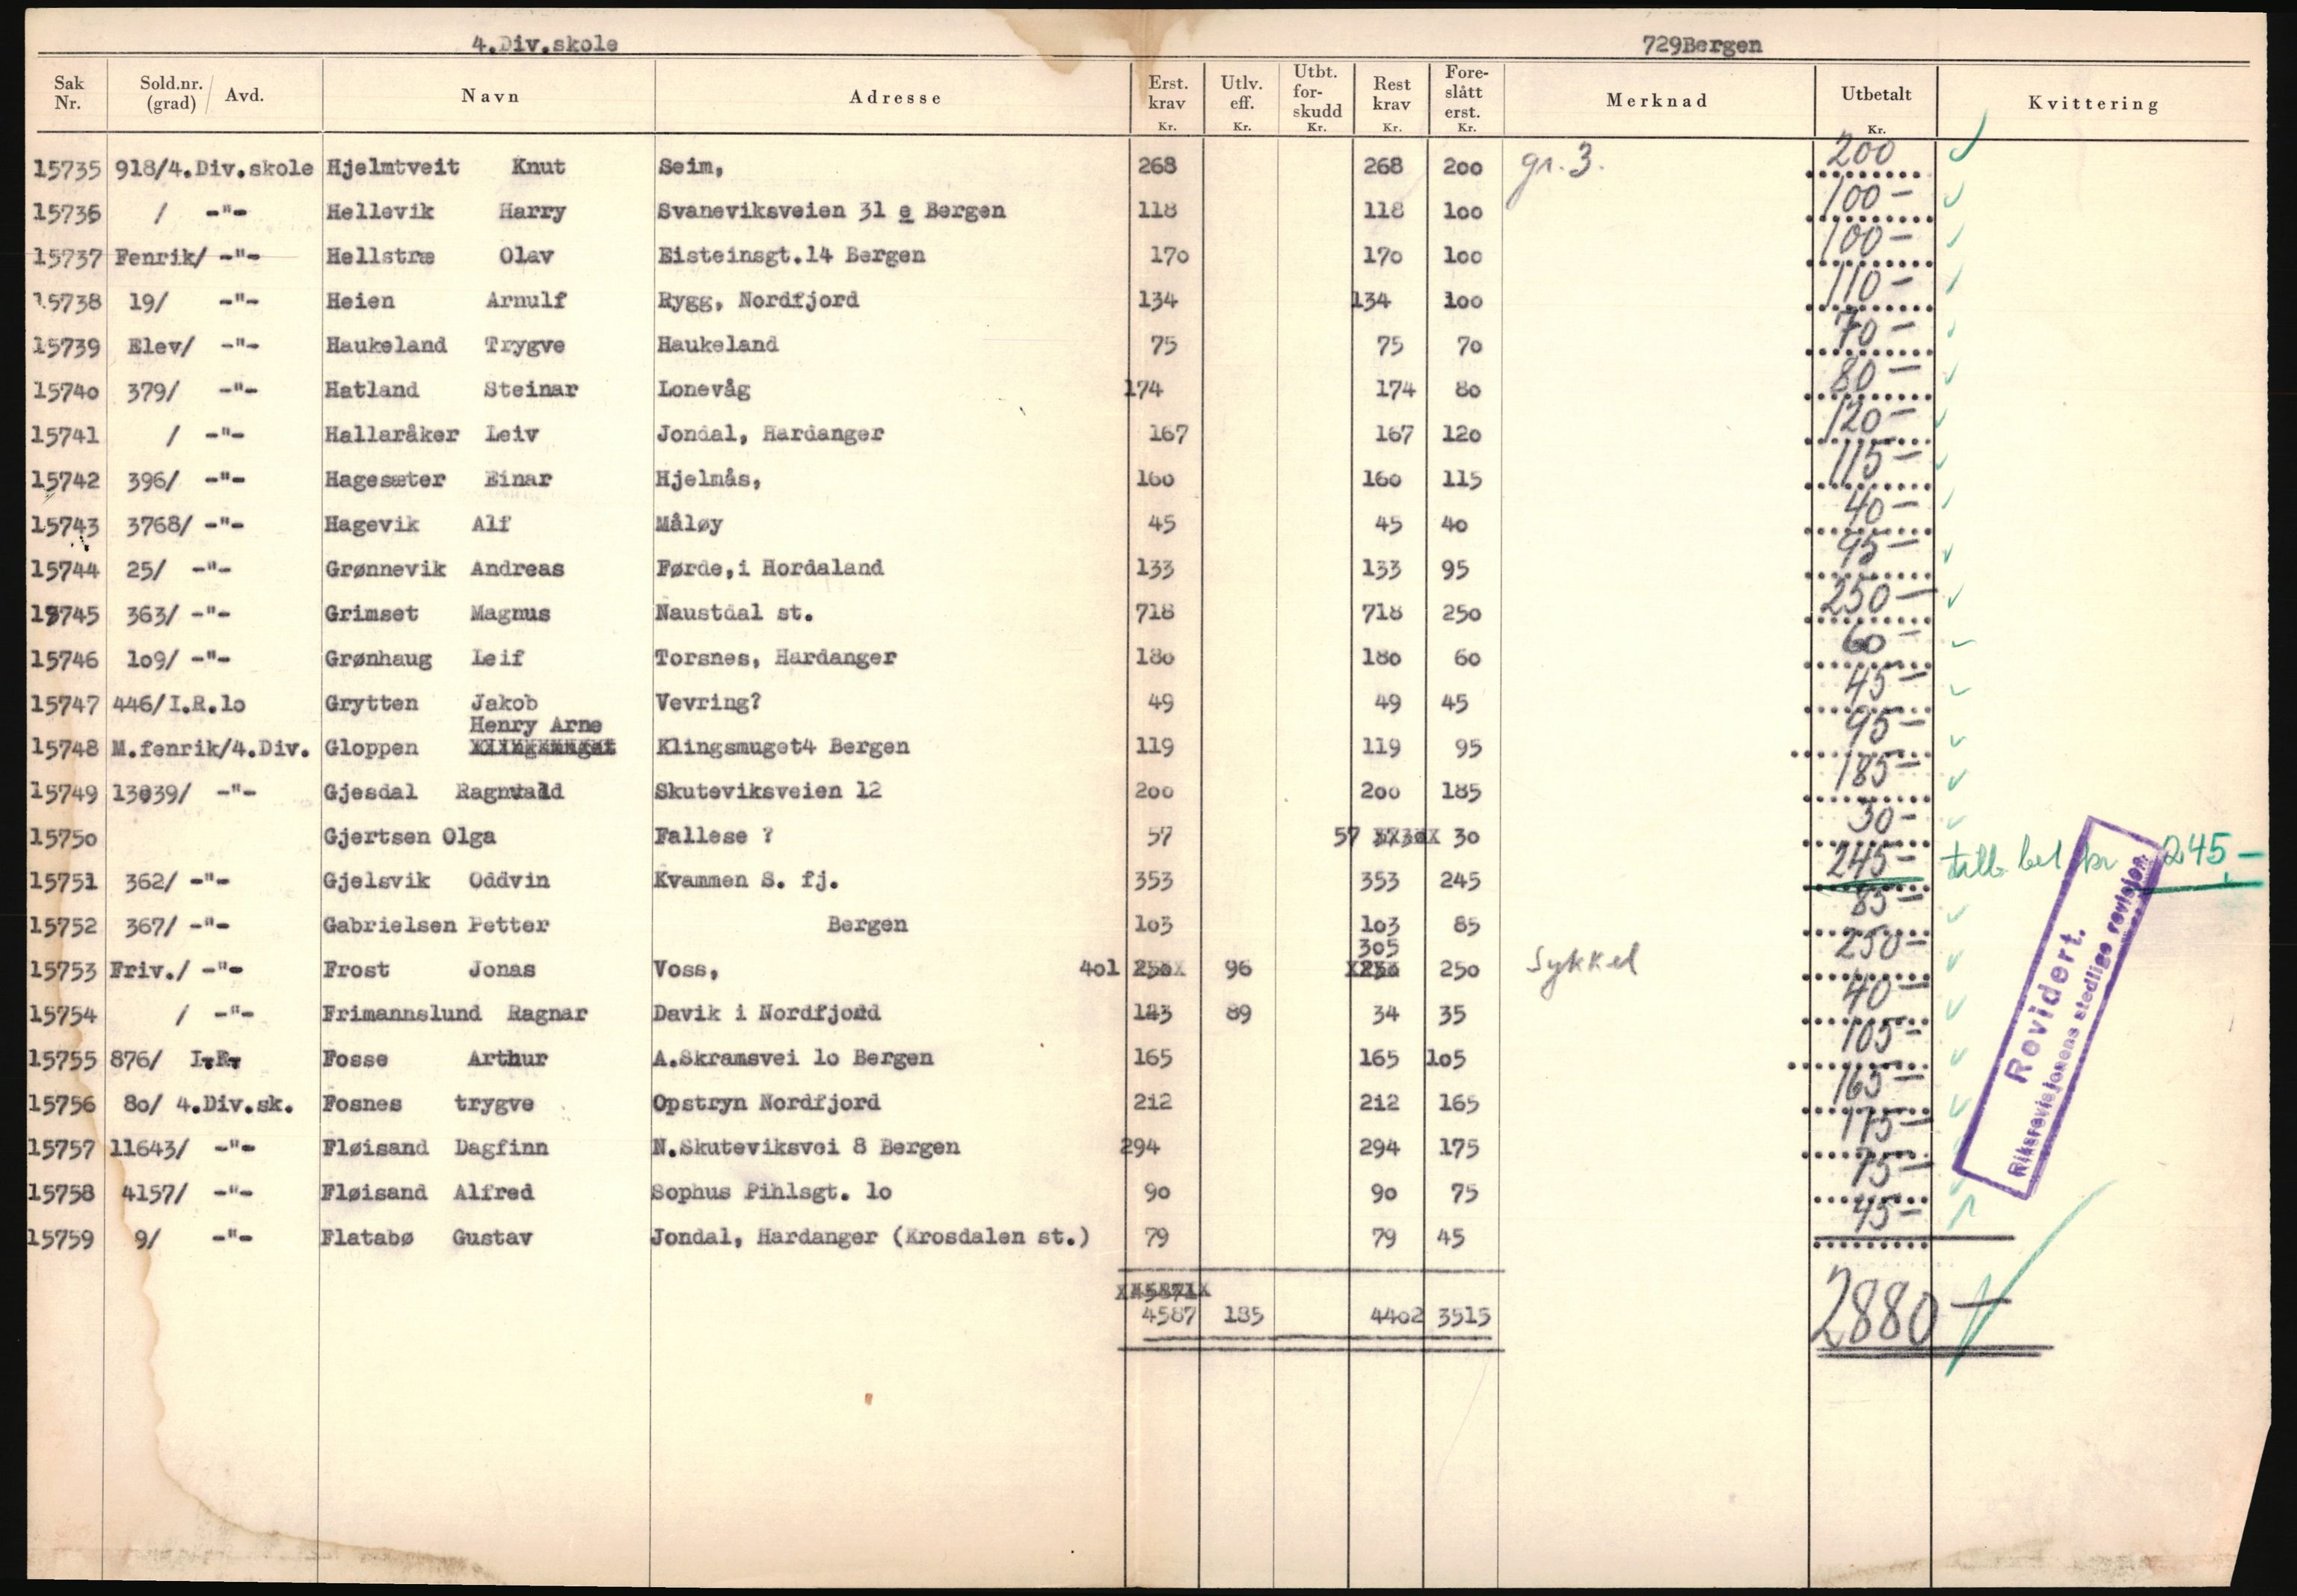 4.Div.skole 729Bergen
Sak Nr. Sold.nr. (grad) / Avd. Navn Adresse Erst. krav Kr. Utlv. eff. Kr. Utbt. for- skudd Kr. Rest krav Kr. Fore- slått erst. Kr. Merknad Utbetalt Kr. Kvittering
15735 918/4.Div.skole Hjelmtveit Knut Seim, 268 268 200 gr. 3. 200
15736 / -"- Hellevik Harry Svaneviksveien 31 e Bergen 118 118 100 100-
15737 Fenrik/ -"- Hellstræ Olav Eisteinsgt.14 Bergen 170 170 100 100-
15738 19/ -"- Heien Arnulf Rygg, Nordfjord 134 134 100 110-
15739 Elev/ -"- Haukeland Trygve Haukeland 75 75 70 70-
15740 379/ -"- Hatland Steinar Lonevåg 174 174 80 80-
15741 / -"- Hallaråker Leiv Jondal, Hardanger 167 167 120 120-
15742 396/ -"- Hagesæter Einar Hjelmås, 160 160 115 115-
15743 3768/ -"- Hagevik Alf Måløy 45 45 40 40-
15744 25/ -"- Grønnevik Andreas Førde,i Hordaland 133 133 95 95-
15745 363/ -"- Grimset Magnus Naustdal st. 718 718 250 250-
15746 109/ -"- Grønhaug Leif Torsnes, Hardanger 180 180 60 60-
15747 446/I.R.10 Grytten Jakob Vevring? 49 49 45 45-
Henry Arne
15748 M.fenrik/4.Div. Gloppen Klingsmuget4 Bergen 119 119 95 95-
15749 13039/ -"- Gjesdal Ragnvald Skuteviksveien 12 200 200 185 185-
15750 Gjertsen Olga Fallese ? 57 57 30 30-
15751 362/ -"- Gjelsvik Oddvin Kvammen S. fj. 353 353 245 245- 245-
15752 367/ -"- Gabrielsen Petter Bergen 103 103 85 85-
305
15753 Friv./ -"- Frost Jonas Voss, 401 96 250 Sykkel 250-
15754 / -"- Frimannslund Ragnar Davik i Nordfjord 123 89 34 35 40-
15755 876/ I.R. Fosse Arthur A.Skramsvei 10 Bergen 165 165 105 105-
15756 80/ 4.Div.sk. Fosnes trygve Opstryn Nordfjord 212 212 165 165-
15757 11643/ -"- Fløisand Dagfinn N.Skuteviksvei 8 Bergen 294 294 175 175-
15758 4157/ -"- Fløisand Alfred Sophus Pihlsgt. 10 90 90 75 75-
15759 9/ -"- Flatabø Gustav Jondal, Hardanger (Krosdalen st.) 79 79 45 45-
4587 185 4402 3515 2880-
Revidert.
Riksrevisjonens stedlige revisjon.